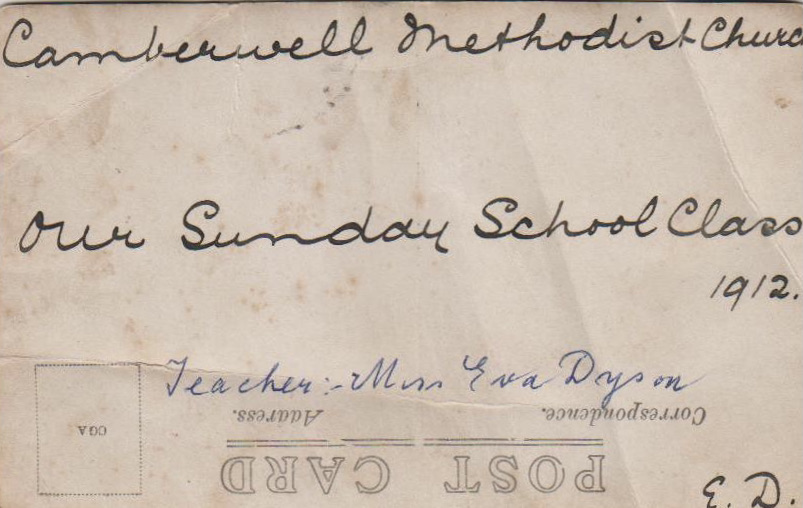 Camberwell Methodist Churc
Our Sunday School Class
1912.
Teacher:- Miss Eva Dyson
Correspondence.
Address.
POST CARD
CGA
E. D.